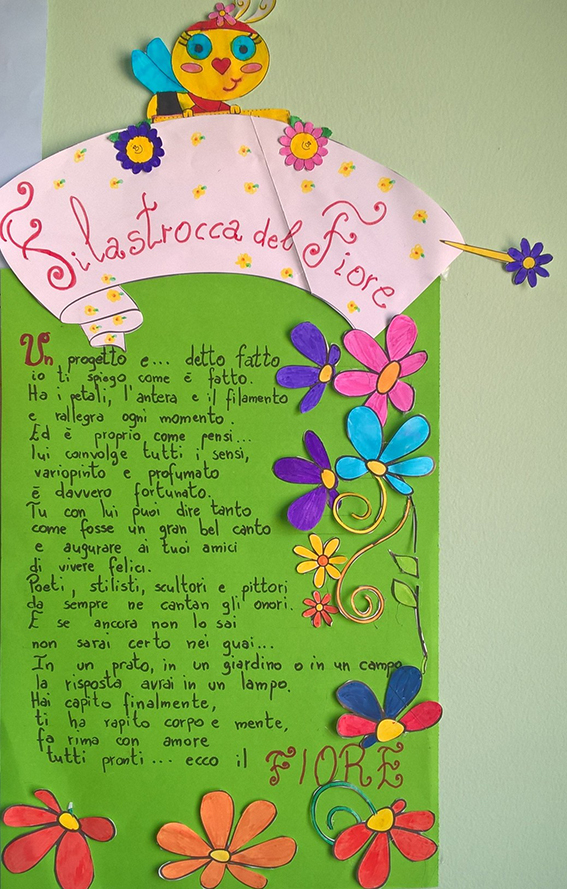 Filastrocca del Fiore
Un progetto e... detto fatto
io ti spiego come è fatto.
Ha i petali, l'antera e il filamento
e rallegra ogni momento.
Ed è proprio come pensi...
lui coinvolge tutti i sensi,
variopinto e profumato
è davvero fortunato.
Tu con lui puoi dire tanto
come fosse un gran bel canto
e augurare ai tuoi amici
di vivere felici.
Poeti, stilisti, scultori e pittori
da sempre ne cantan gli onori.
E se ancora non lo sai
non sarai certo nei guai...
In un prato, in un giardino o in un campo
la risposta avrai in un lampo.
Hai capito finalmente,
ti ha rapito corpo e mente,
fa rima con amore
tutti pronti... ecco il FIORE